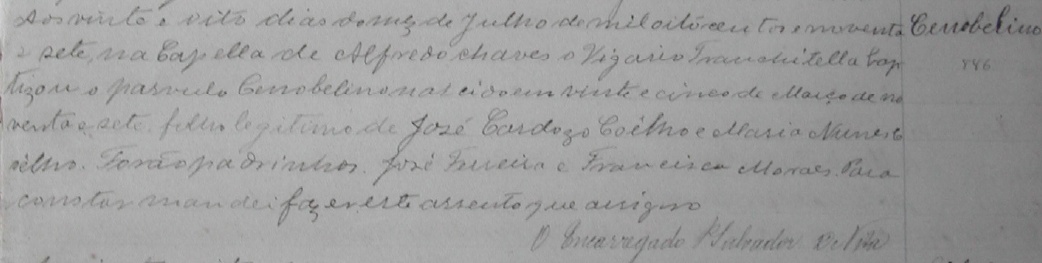 Aos vinte e oito dias do mez de Julho de mil oitocentos e noventa Cenobelino
e sete, na Capella de Alfredo chaves o Vigario Tranchitella bap
tizou o parvulo Cenobelino nascido em vinte e cinco de Março de no
venta e sete. filho legitimo de José Cardozo Coêlho e Maria Nunes C
oêlho. Forão padrinhos. José Ferreira e Francisca Moraes. Para
constar mandei fazer este assento que assigno
O Encarregado P. Salvador